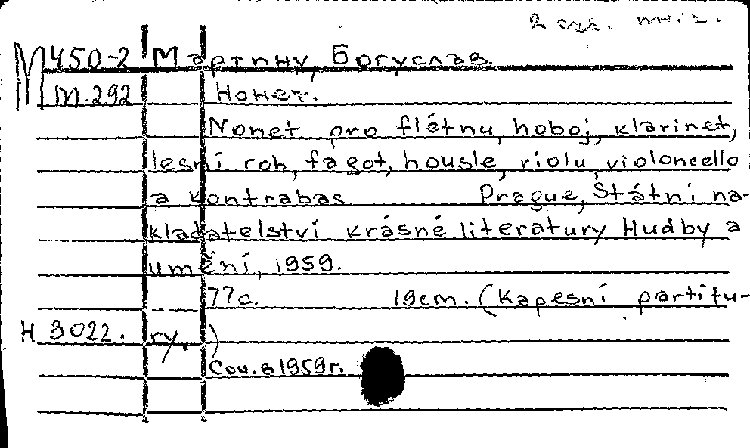 2 экз.
М 450-2 Мартину, Богуслав.
М.292 Нонет.
Nonet pro flétnu, hoboj, klarinet,
lesní roh, fagot, housle, violu, violoncello
a kontrabas. Prague, Státní na-
kladatelství krásné literatury Hudby a
umění, 1959.
77с. 19cm. (Kapesní partitu-
Н 3022. ry.)
Соч. в 1959г.